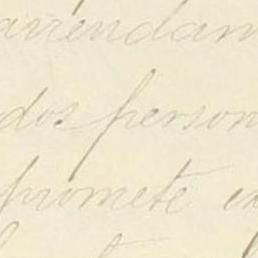 arrendam
dos person
promete